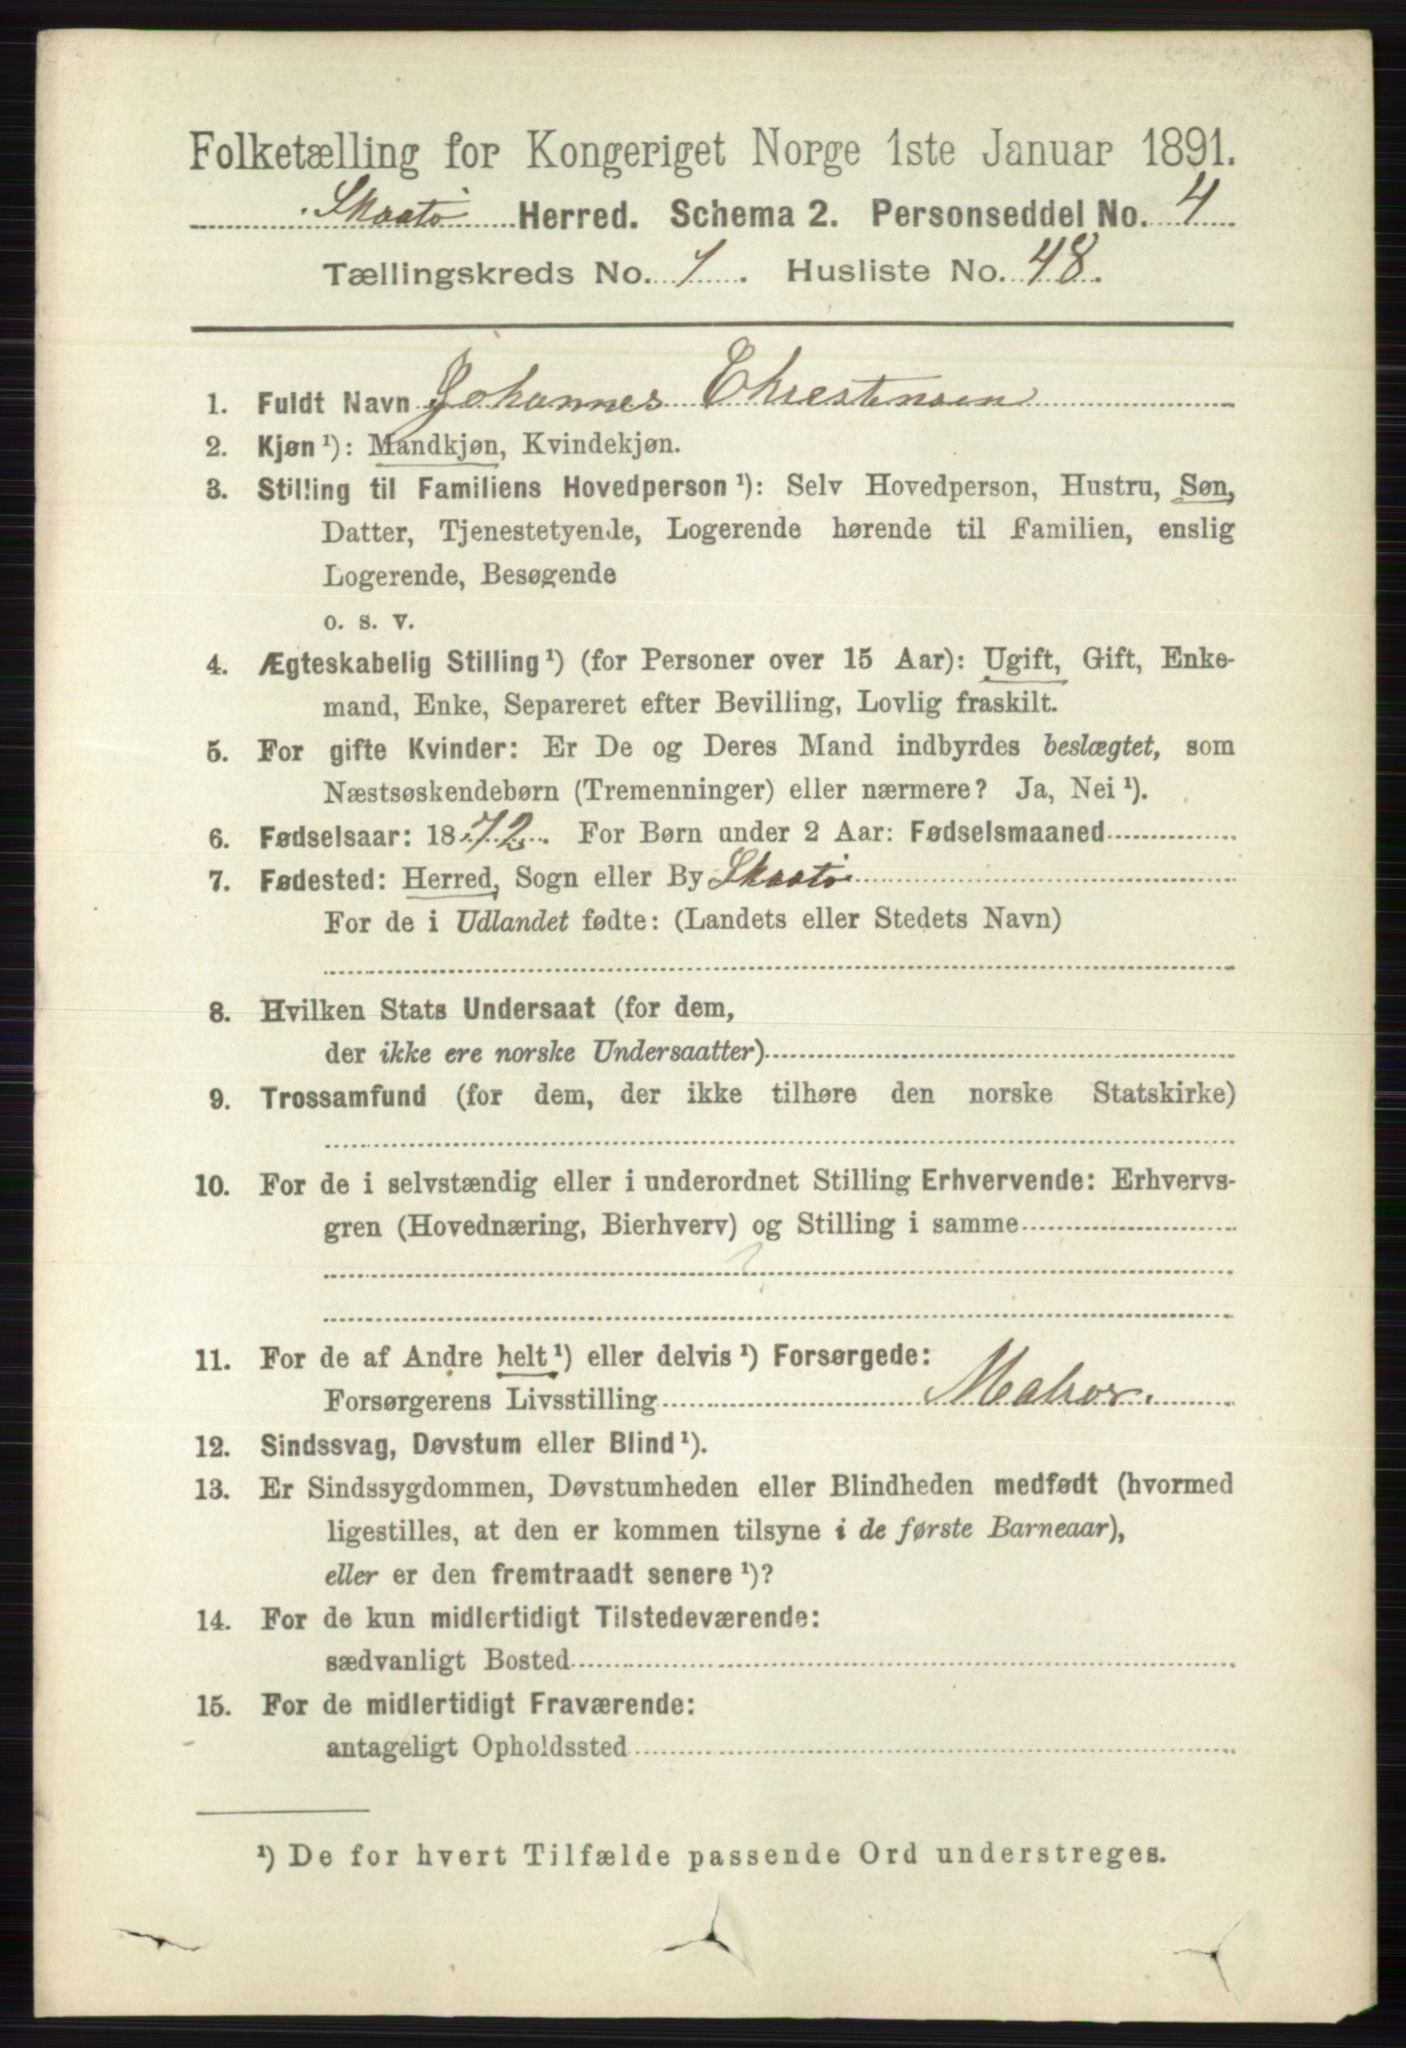 Folketælling for Kongeriget Norge 1ste Januar 1891.
Skaatø Herred. Schema 2. Personseddel No. 4
Tællingskreds No. 1. Husliste No. 48.
1. Fuldt Navn Johannes Chrestensen
2. Kjøn¹): Mandkjøn, Kvindekjøn.
3. Stilling til Familiens Hovedperson¹): Selv Hovedperson, Hustru, Søn,
Datter, Tjenestetyende, Logerende hørende til Familien, enslig
Logerende, Besøgende
o. s. v.
4. Ægteskabelig Stilling¹) (for Personer over 15 Aar): Ugift, Gift, Enke-
mand, Enke, Separeret efter Bevilling, Lovlig fraskilt.
5. For gifte Kvinder: Er De og Deres Mand indbyrdes beslægtet, som
Næstsøskendebørn (Tremenninger) eller nærmere? Ja, Nei¹).
6. Fødselsaar: 1872. For Børn under 2 Aar: Fødselsmaaned
7. Fødested: Herred, Sogn eller By Skaatø
For de i Udlandet fødte: (Landets eller Stedets Navn)
8. Hvilken Stats Undersaat (for dem,
der ikke ere norske Undersaatter)
9. Trossamfund (for dem, der ikke tilhøre den norske Statskirke)
10. For de i selvstændig eller i underordnet Stilling Erhvervende: Erhvervs-
gren (Hovednæring, Bierhverv) og Stilling i samme
11. For de af Andre helt¹) eller delvis¹) Forsørgede:
Forsørgerens Livsstilling
12. Sindssvag, Døvstum eller Blind¹).
13. Er Sindssygdommen, Døvstumheden eller Blindheden medfødt (hvormed
ligestilles, at den er kommen tilsyne i de første Barneaar),
eller er den fremtraadt senere¹)?
14. For de kun midlertidigt Tilstedeværende:
sædvanligt Bosted
15. For de midlertidigt Fraværende:
antageligt Opholdssted
¹) De for hvert Tilfælde passende Ord understreges.